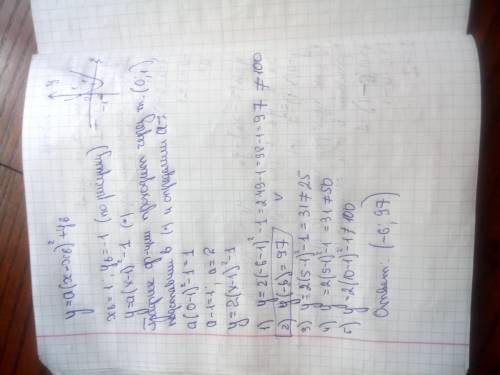 y=a(x-xв)²+yв
xв=1 yв=-1 (по рисунку)
y=a(x-1)²-1 (*)
График ф-ции проходит через т. (0,1),
подставим в (*) и определим a:
a(0-1)²-1=1
a-1=1; a=2
y=2(x-1)²-1
1) y=2(-6-1)²-1=2·49-1=98-1=97≠100
2) y(-6)=97 v
3) y=2(5-1)²-1=31≠25
4) y=2(5-1)²-1=31≠50
5) y=2(10-1)²-1≠100
Ответ: (-6; 97)